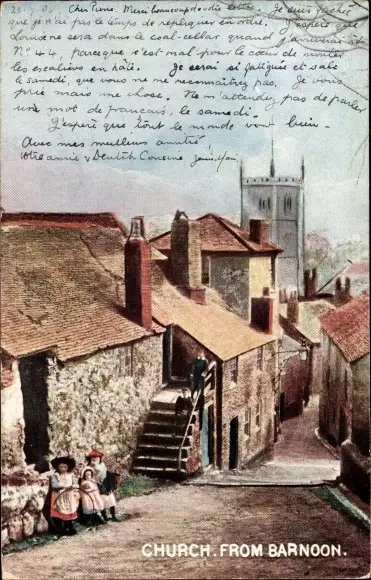 Cher Pierre. Merci beaucoup de votre lettre. Je suis fachée
que je n'ai pas le temps de repliquer en ordre. J'espère que
Louise sera dans le coal-cellar quand j'arriverai à
No. 44, parceque c'est mal pour le cœur de monter
les escaliers en hâte. Je serai si fatiguée et sale
le samedi, que vous ne me reconnaîtrez pas. Je vous
prie mais une chose. Ne m'attendez pas de parler
un mot de francais, le samedi.
J'espère que tout le monde va bien.
Avec mes meilleurs amitiés
Votre amie & Deutsch Cousine
CHURCH. FROM BARNOON.